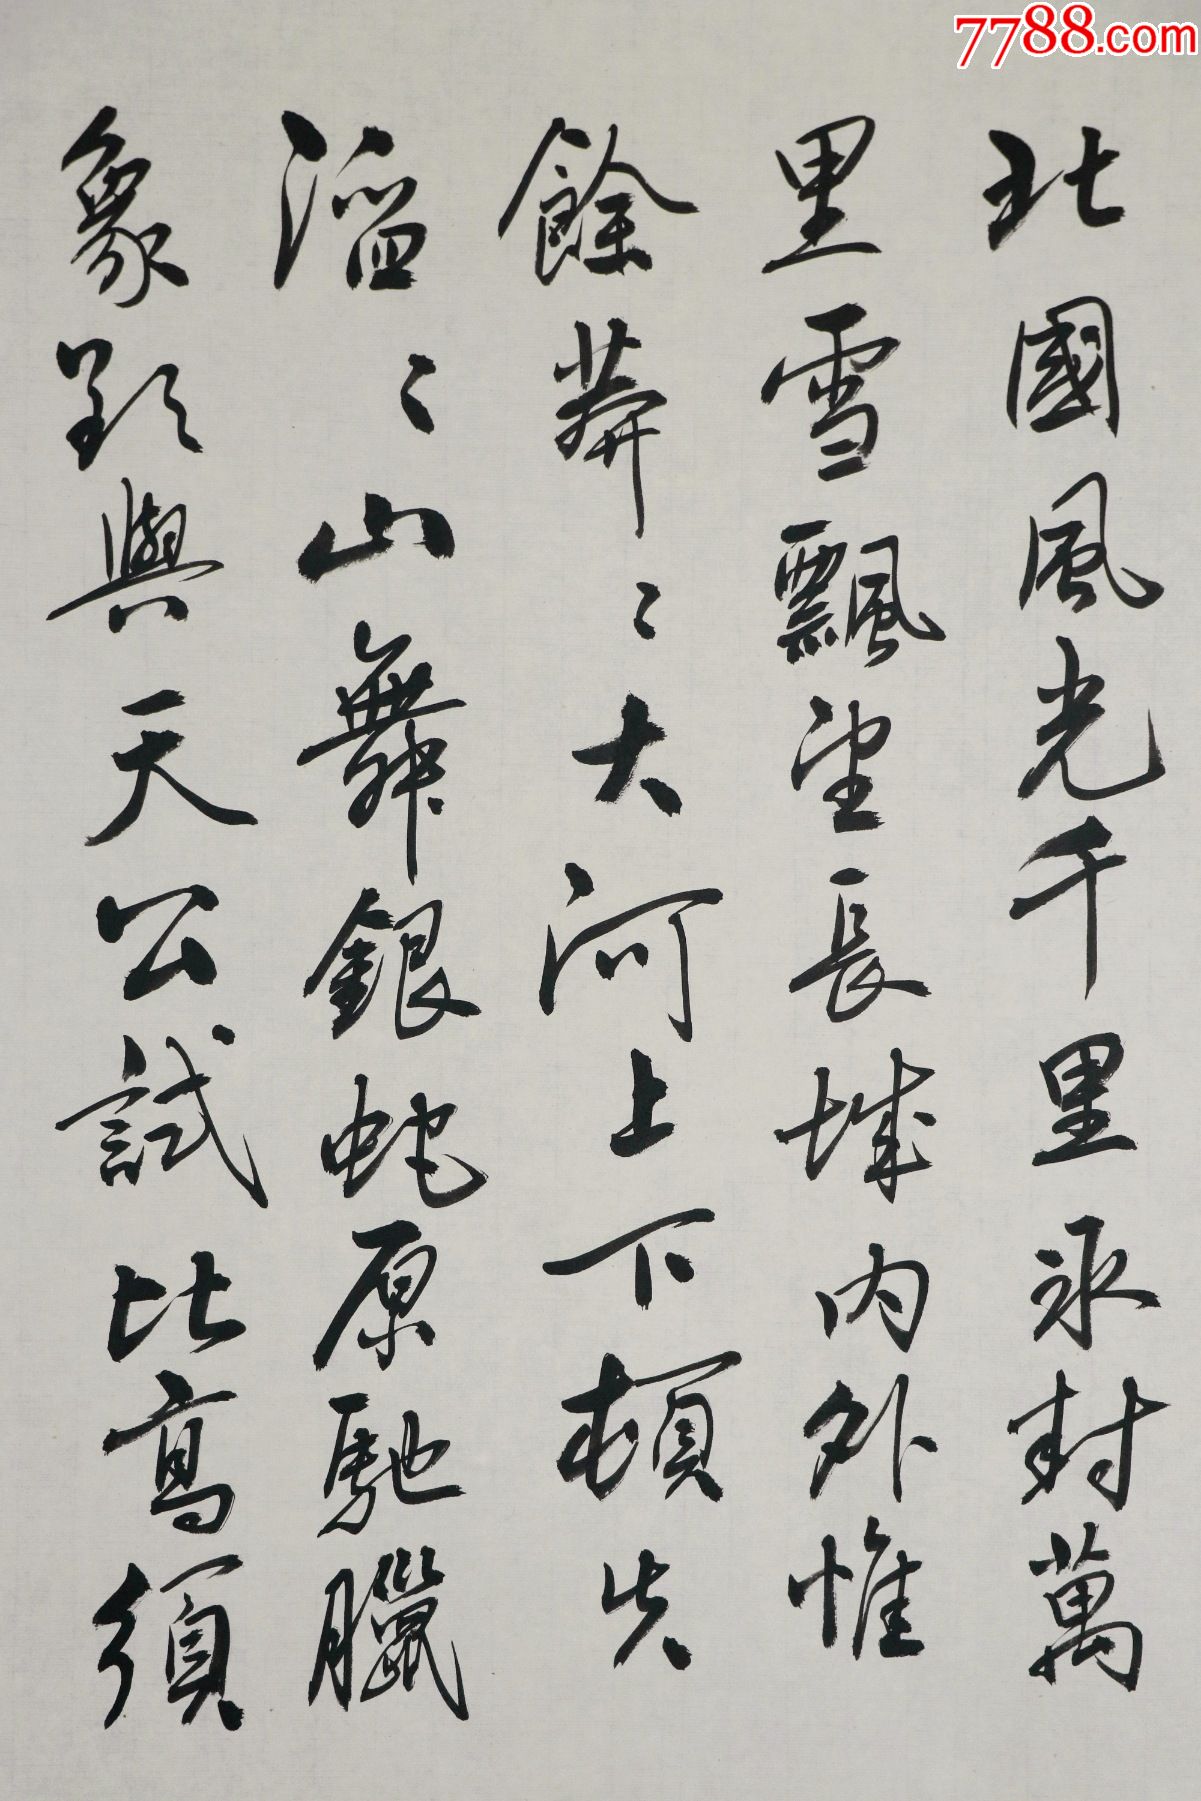 7788.com
北國風光千里冰封萬
里雪飄望長城内外惟
餘莽〻大河上下頓失
滔〻山舞銀蛇原馳臘
象欲與天公試比高須